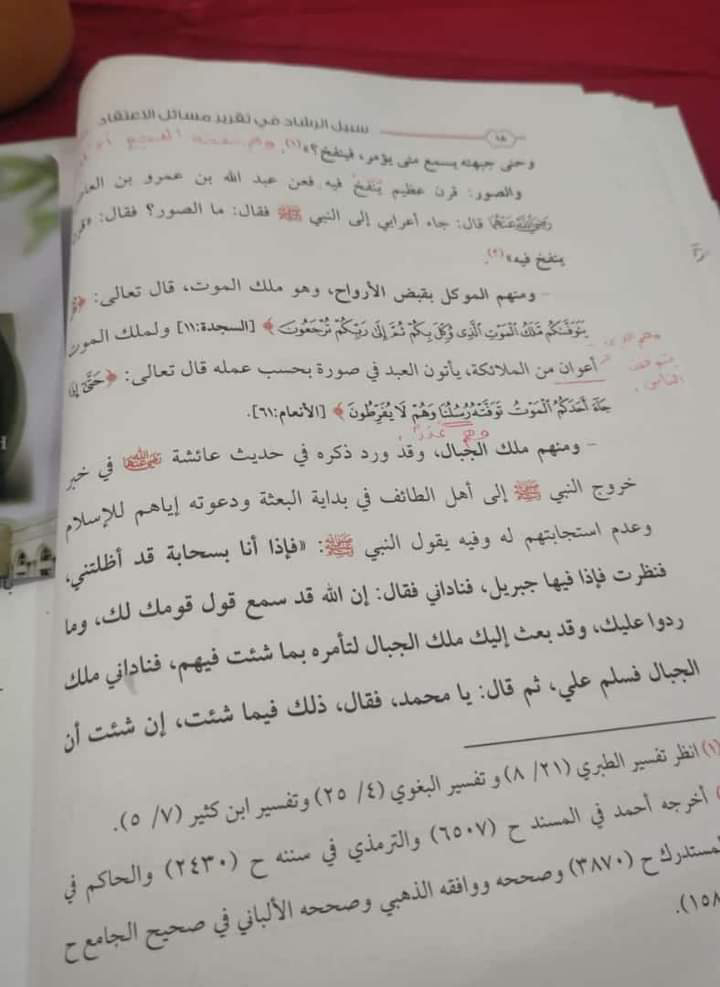 سبيل الرشاد في تقرير مسائل الاعتقاد
وحنى جبهته يسمع متى يؤمر، فينفخ؟»(١). وهي نفخة
والصور: قرن عظيم يُنفخ فيه فعن عبد الله بن عمرو بن العاص
رَضِيَ اللَّهُ عَنْهُمَا قال: جاء أعرابي إلى النبي ﷺ فقال: ما الصور؟ فقال: «قرن
ينفخ فيه»(٢).
- ومنهم الموكل بقبض الأرواح، وهو ملك الموت، قال تعالى: ﴿قُلْ
يَتَوَفَّىٰكُم مَّلَكُ ٱلْمَوْتِ ٱلَّذِى وُكِّلَ بِكُمْ ثُمَّ إِلَىٰ رَبِّكُمْ تُرْجَعُونَ﴾ [السجدة:١١] ولملك الموت
أعوان من الملائكة، يأتون العبد في صورة بحسب عمله قال تعالى: ﴿حَتَّىٰٓ إِذَا
جَآءَ أَحَدَكُمُ ٱلْمَوْتُ تَوَفَّتْهُ رُسُلُنَا وَهُمْ لَا يُفَرِّطُونَ﴾ [الأنعام:٦١].
وهم
- ومنهم ملك الجبال، وقد ورد ذكره في حديث عائشة رَضِيَ اللَّهُ عَنْهَا في خبر
خروج النبي ﷺ إلى أهل الطائف في بداية البعثة ودعوته إياهم للإسلام
وعدم استجابتهم له وفيه يقول النبي ﷺ: «فإذا أنا بسحابة قد أظلتني،
فنظرت فإذا فيها جبريل، فناداني فقال: إن الله قد سمع قول قومك لك، وما
ردوا عليك، وقد بعث إليك ملك الجبال لتأمره بما شئت فيهم، فناداني ملك
الجبال فسلم علي، ثم قال: يا محمد، فقال، ذلك فيما شئت، إن شئت أن
(١) انظر تفسير الطبري (٢١/ ٨) و تفسير البغوي (٤/ ٢٥) وتفسير ابن كثير (٧/ ٥).
أخرجه أحمد في المسند ح (٦٥٠٧) والترمذي في سننه ح (٢٤٣٠) والحاكم في
لمستدرك ح (٣٨٧٠) وصححه ووافقه الذهبي وصححه الألباني في صحيح الجامع ح